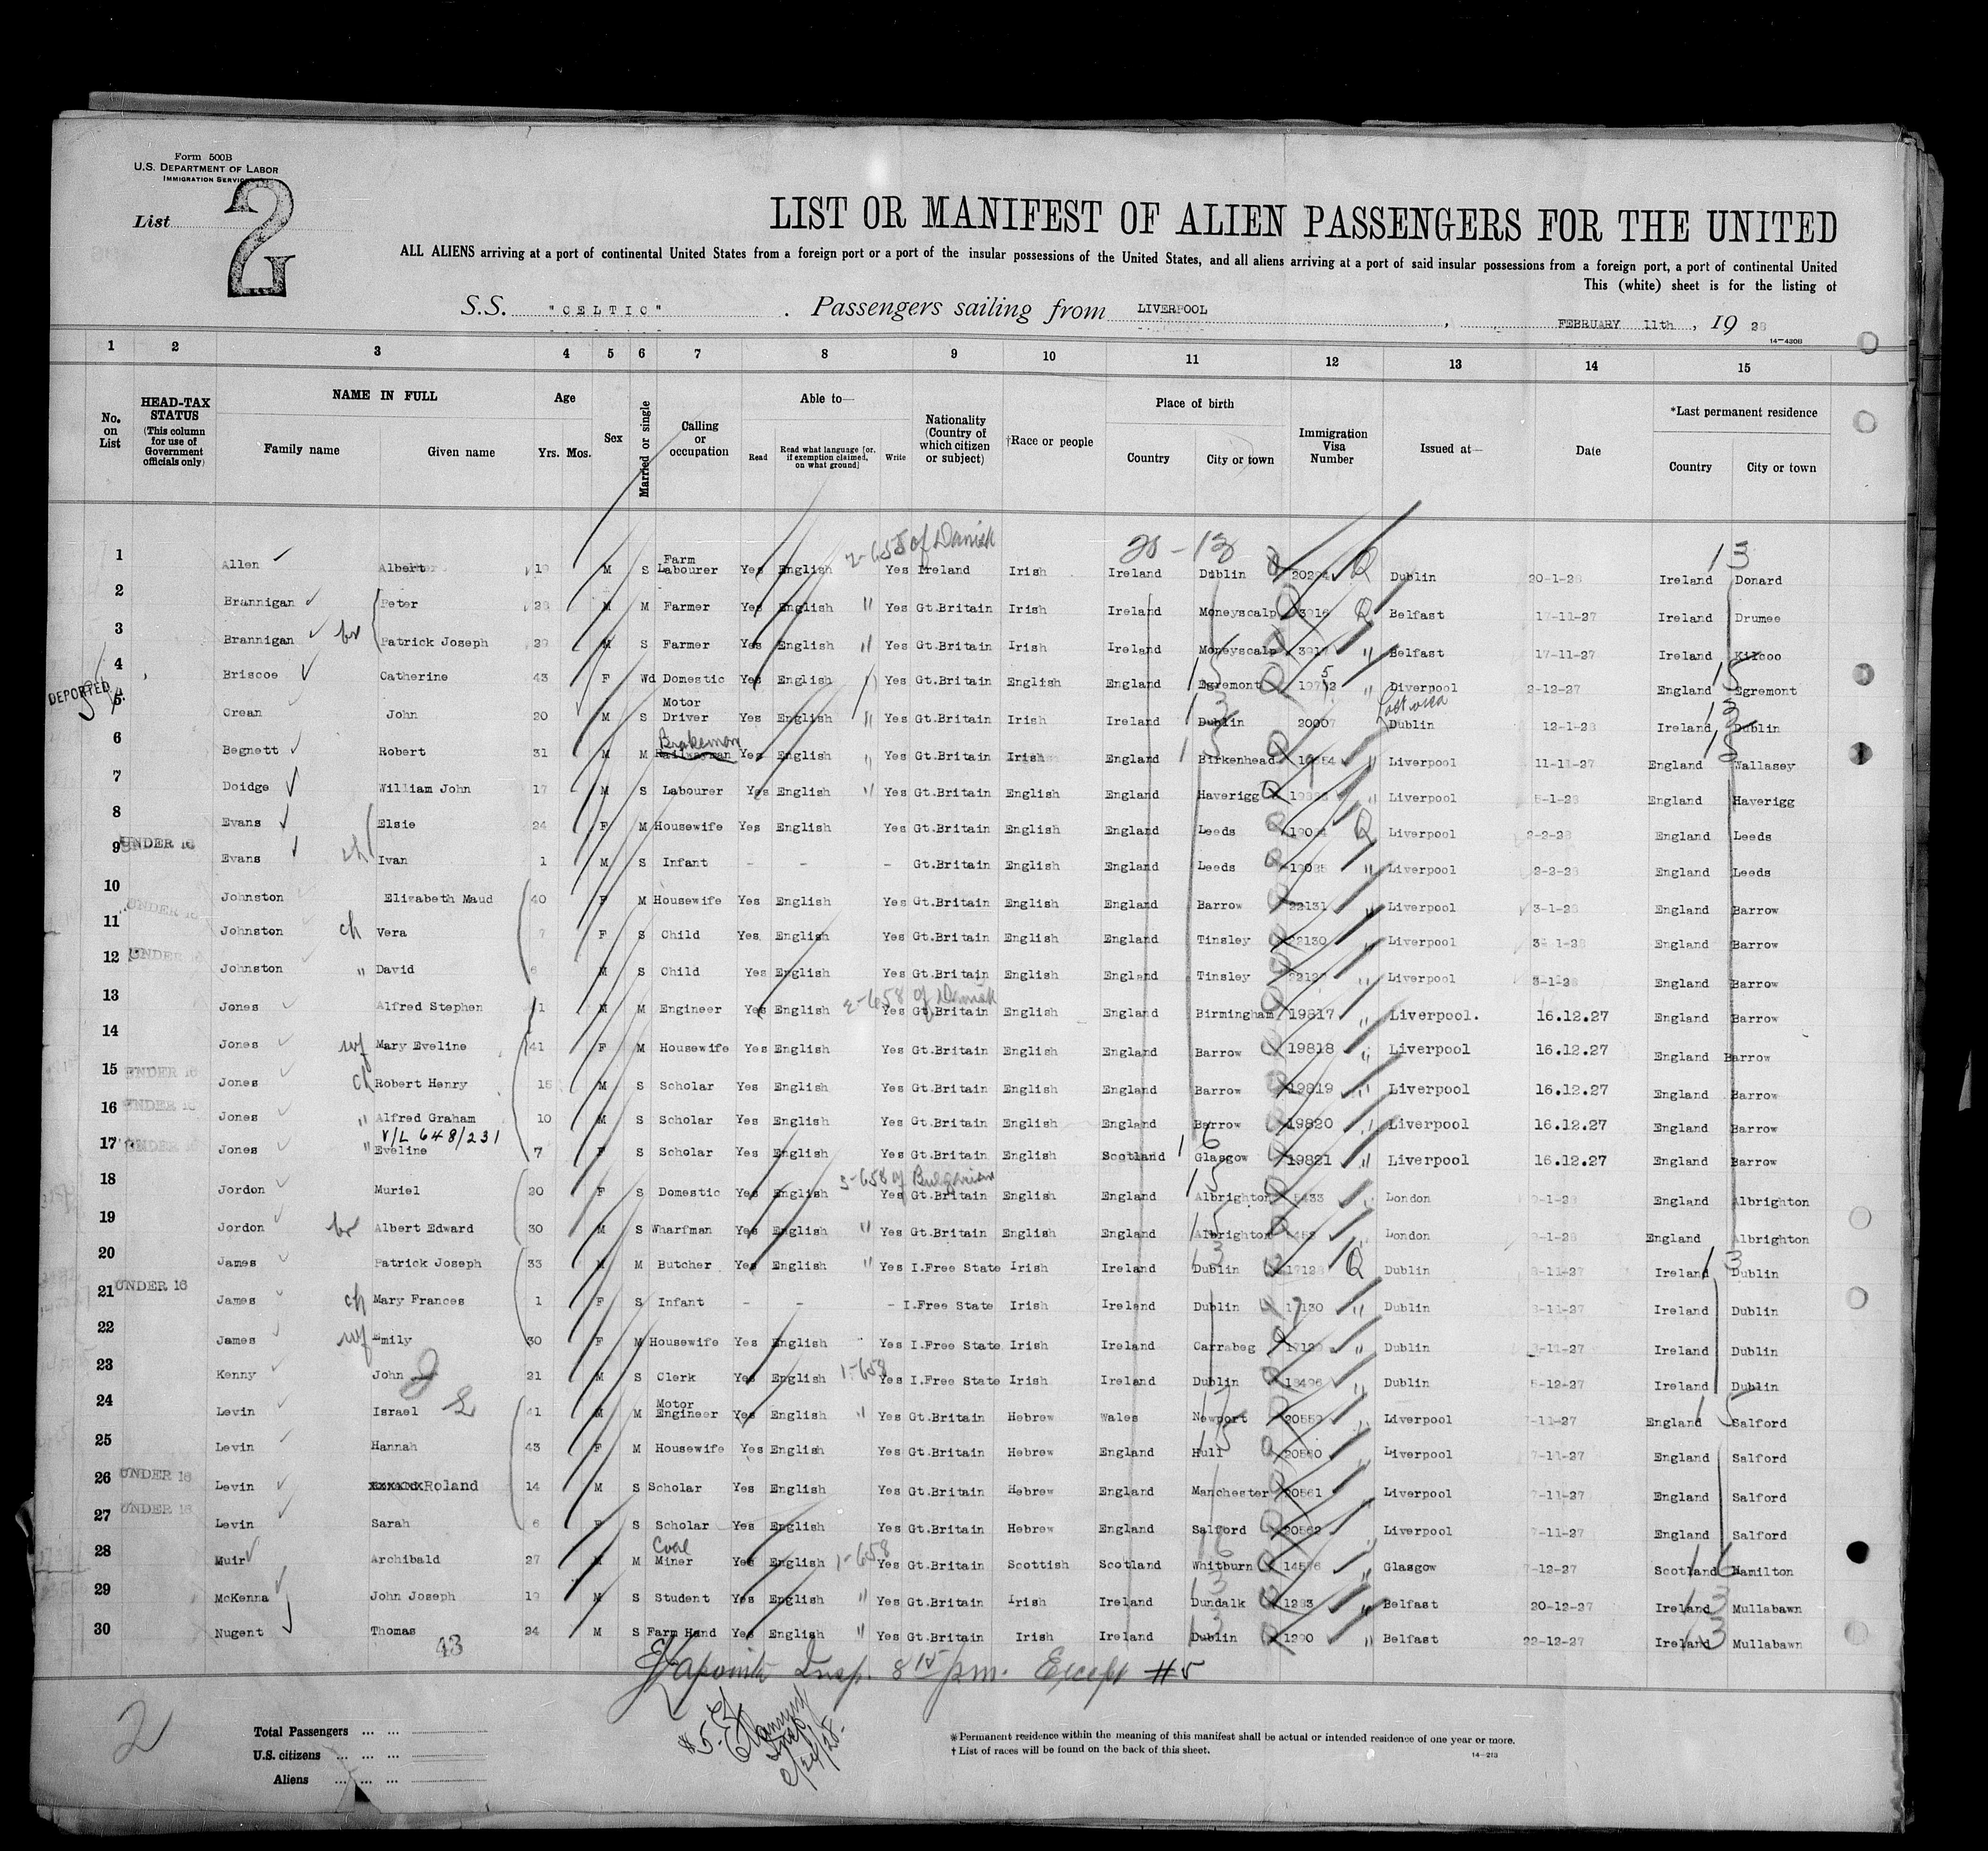 Form 500B
U.S. DEPARTMENT OF LABOR
IMMIGRATION SERVICE
List 2
LIST OR MANIFEST OF ALIEN PASSENGERS FOR THE UNITED
ALL ALIENS arriving at a port of continental United States from a foreign port or a port of the insular possessions of the United States, and all aliens arriving at a port of said insular possessions from a foreign port, a port of continental United
This (white) sheet is for the listing of
S.S. "CELTIC" . Passengers sailing from LIVERPOOL , FEBRUARY 11th , 19 28
14-430B
1 2 3 4 5 6 7 8 9 10 11 12 13 14 15
No. on List
HEAD-TAX STATUS (This column for use of Government officials only)
NAME IN FULL
Family name Given name
Age
Yrs. Mos.
Sex
Married or single
Calling or occupation
Able to—
Read
Read what language [or, if exemption claimed, on what ground]
Write
Nationality (Country of which citizen or subject)
†Race or people
Place of birth
Country City or town
Immigration Visa Number
Issued at—
Date
*Last permanent residence
Country City or town
1 Allen Albert 19 M S Farm Labourer Yes English Yes Ireland Irish Ireland Dublin Dublin 20-1-28 Ireland Donard
2 Brannigan Peter 28 M M Farmer Yes English " Yes Gt.Britain Irish Ireland Moneyscalp 3916 Belfast 17-11-27 Ireland Drumee
3 Brannigan br Patrick Joseph 29 M S Farmer Yes English " Yes Gt.Britain Irish Ireland Moneyscalp " Belfast 17-11-27 Ireland Kilcoo
4 Briscoe Catherine 43 F Wd Domestic Yes English " Yes Gt.Britain English England Egremont " Liverpool 2-12-27 England Egremont
DEPORTED
5 Crean John 20 M S Motor Driver Yes English " Yes Gt.Britain Irish Ireland Dublin 20007 Dublin 12-1-28 Ireland Dublin
6 Begnett Robert 31 M M Brakeman Railwayman Yes English " Yes Gt.Britain Irish England Birkenhead " Liverpool 11-11-27 England Wallasey
7 Doidge William John 17 M S Labourer Yes English " Yes Gt.Britain English England Haverigg " Liverpool 5-1-28 England Haverigg
8 Evans Elsie 24 F M Housewife Yes English Yes Gt.Britain English England Leeds Liverpool 2-2-28 England Leeds
9 UNDER 16 Evans ch Ivan 1 M S Infant - - - Gt.Britain English England Leeds 19085 " Liverpool 2-2-28 England Leeds
10 Johnston Elizabeth Maud 40 F M Housewife Yes English Yes Gt.Britain English England Barrow 22131 " Liverpool 3-1-28 England Barrow
11 UNDER 16 Johnston ch Vera 7 F S Child Yes English Yes Gt.Britain English England Tinsley 22130 " Liverpool 3-1-28 England Barrow
12 UNDER 16 Johnston " David 6 M S Child Yes English Yes Gt.Britain English England Tinsley " Liverpool 3-1-28 England Barrow
13 Jones Alfred Stephen 41 M M Engineer Yes English Yes Gt.Britain English England Birmingham 19817 " Liverpool. 16.12.27 England Barrow
14 Jones wf Mary Eveline 41 F M Housewife Yes English Yes Gt.Britain English England Barrow 19818 " Liverpool 16.12.27 England Barrow
15 UNDER 16 Jones ch Robert Henry 15 M S Scholar Yes English Yes Gt.Britain English England Barrow 19819 " Liverpool 16.12.27 England Barrow
16 UNDER 16 Jones " Alfred Graham 10 M S Scholar Yes English Yes Gt.Britain English England Barrow 19820 " Liverpool 16.12.27 England Barrow
V/L 648/231
17 UNDER 16 Jones " Eveline 7 F S Scholar Yes English Yes Gt.Britain English Scotland Glasgow 19821 " Liverpool 16.12.27 England Barrow
18 Jordon Muriel 20 F S Domestic Yes English Yes Gt.Britain English England Albrighton 5433 " London England Albrighton
19 Jordon br Albert Edward 30 M S Wharfman Yes English " Yes Gt.Britain English England Albrighton " London England Albrighton
20 James Patrick Joseph 33 M M Butcher Yes English " Yes I.Free State Irish Ireland Dublin 17128 Dublin Ireland Dublin
21 UNDER 16 James ch Mary Frances 1 F S Infant - - - I.Free State Irish Ireland Dublin 17130 " Dublin Ireland Dublin
22 James wf Emily 30 F M Housewife Yes English Yes I.Free State Irish Ireland Carrabeg " Dublin Ireland Dublin
23 Kenny John 21 M S Clerk Yes English 1-658 Yes I.Free State Irish Ireland Dublin 18496 " Dublin 5-12-27 Ireland Dublin
24 Levin Israel 41 M M Motor Engineer Yes English " Yes Gt.Britain Hebrew Wales Newport 20559 " Liverpool 7-11-27 England Salford
25 Levin Hannah 43 F M Housewife Yes English Yes Gt.Britain Hebrew England Hull 20560 " Liverpool 7-11-27 England Salford
26 UNDER 16 Levin Roland 14 M S Scholar Yes English Yes Gt.Britain Hebrew England Manchester 20561 Liverpool 7-11-27 England Salford
27 UNDER 16 Levin Sarah 6 F S Scholar Yes English Yes Gt.Britain Hebrew England Salford 20562 Liverpool 7-11-27 England Salford
28 Muir Archibald 27 M M Coal Miner Yes English 1-658 Yes Gt.Britain Scottish Scotland Whitburn " Glasgow 7-12-27 Scotland Hamilton
29 McKenna John Joseph 19 M S Student Yes English " Yes Gt.Britain Irish Ireland Dundalk 1283 " Belfast 20-12-27 Ireland Mullabawn
30 Nugent Thomas 24 M S Farm Hand Yes English " Yes Gt.Britain Irish Ireland Dublin 1290 " Belfast 22-12-27 Ireland Mullabawn
43
Insp. 8 15 pm. Except #5
2
Total Passengers ... ...
U.S. citizens ... ...
Aliens ... ... ...
* Permanent residence within the meaning of this manifest shall be actual or intended residence of one year or more.
† List of races will be found on the back of this sheet.
14-213